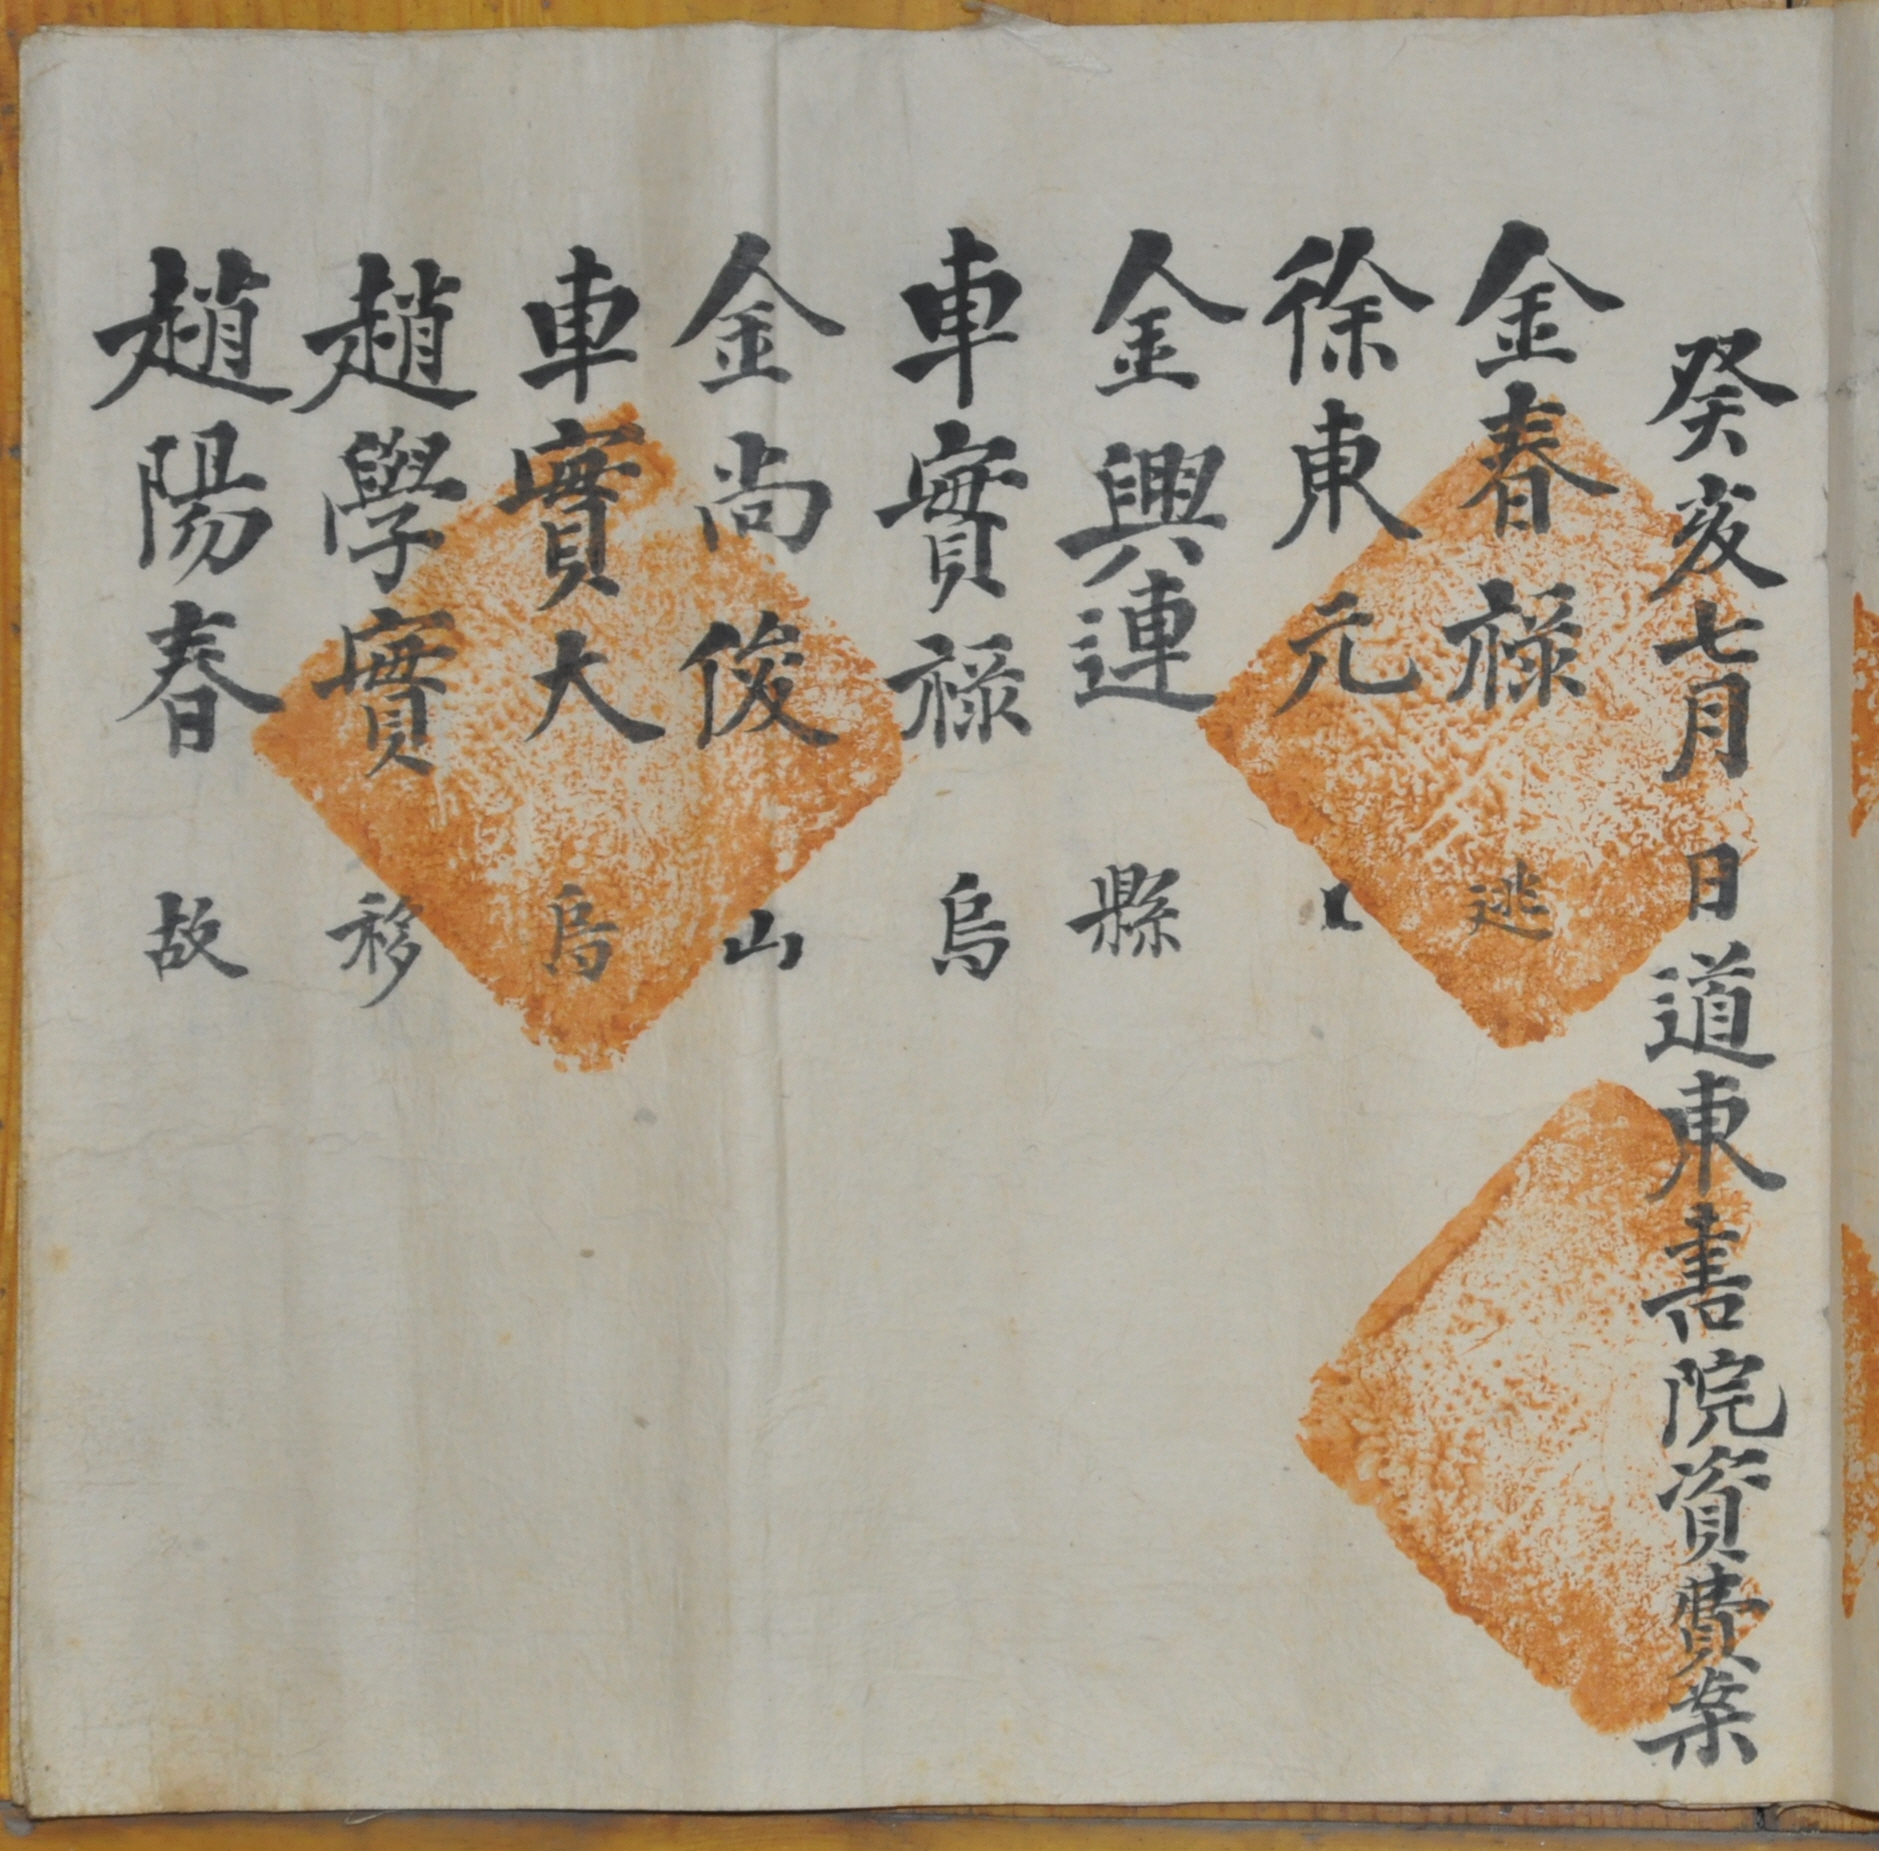 癸亥七月 日道東書院資費案
金春祿 逃
徐東元
金興連 縣
車實祿 烏
金尚俊 山
車實大 烏
趙學實 移
趙陽春 故